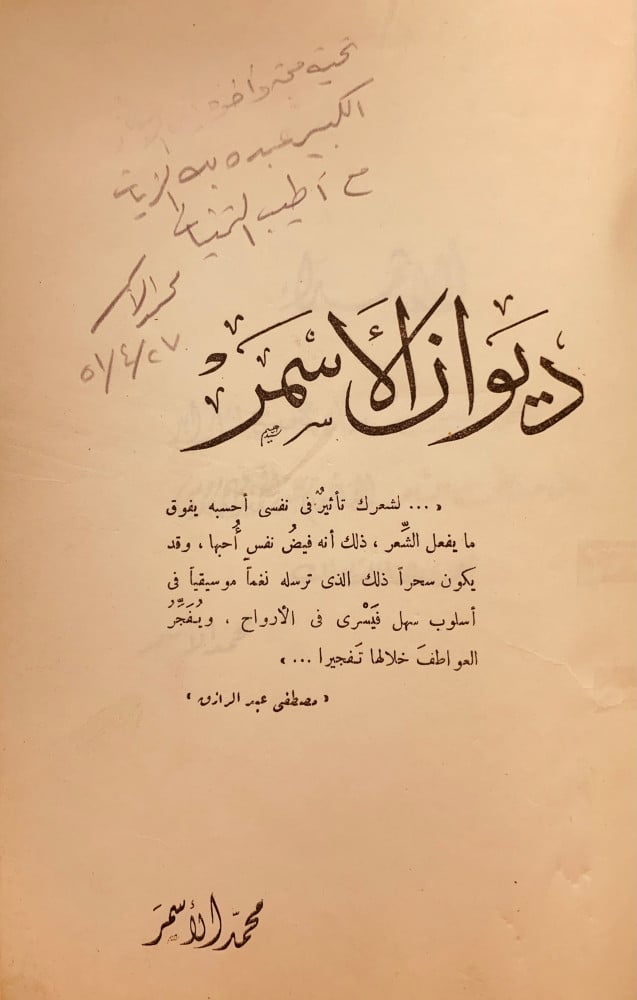 تحية محبة وأخوة
الكبير عبده الزيات
مع أطيب التمنيات
محمد الأسمر
٥١/٤/٢٧
ديوان الأسمر
« ... لشعرك تأثيرٌ فى نفسى أحسبه يفوق
ما يفعل الشِّعر ، ذلك أنه فيضُ نفسٍ أُحبها ، وقد
يكون سحراً ذلك الذى ترسله نغماً موسيقياً فى
أسلوب سهل فَيَسْرى فى الأرواح ، ويُفَجِّرُ
العواطفَ خلالها تَفجيرا ... »
« مصطفى عبد الرازق »
محمّد الأسمرَ